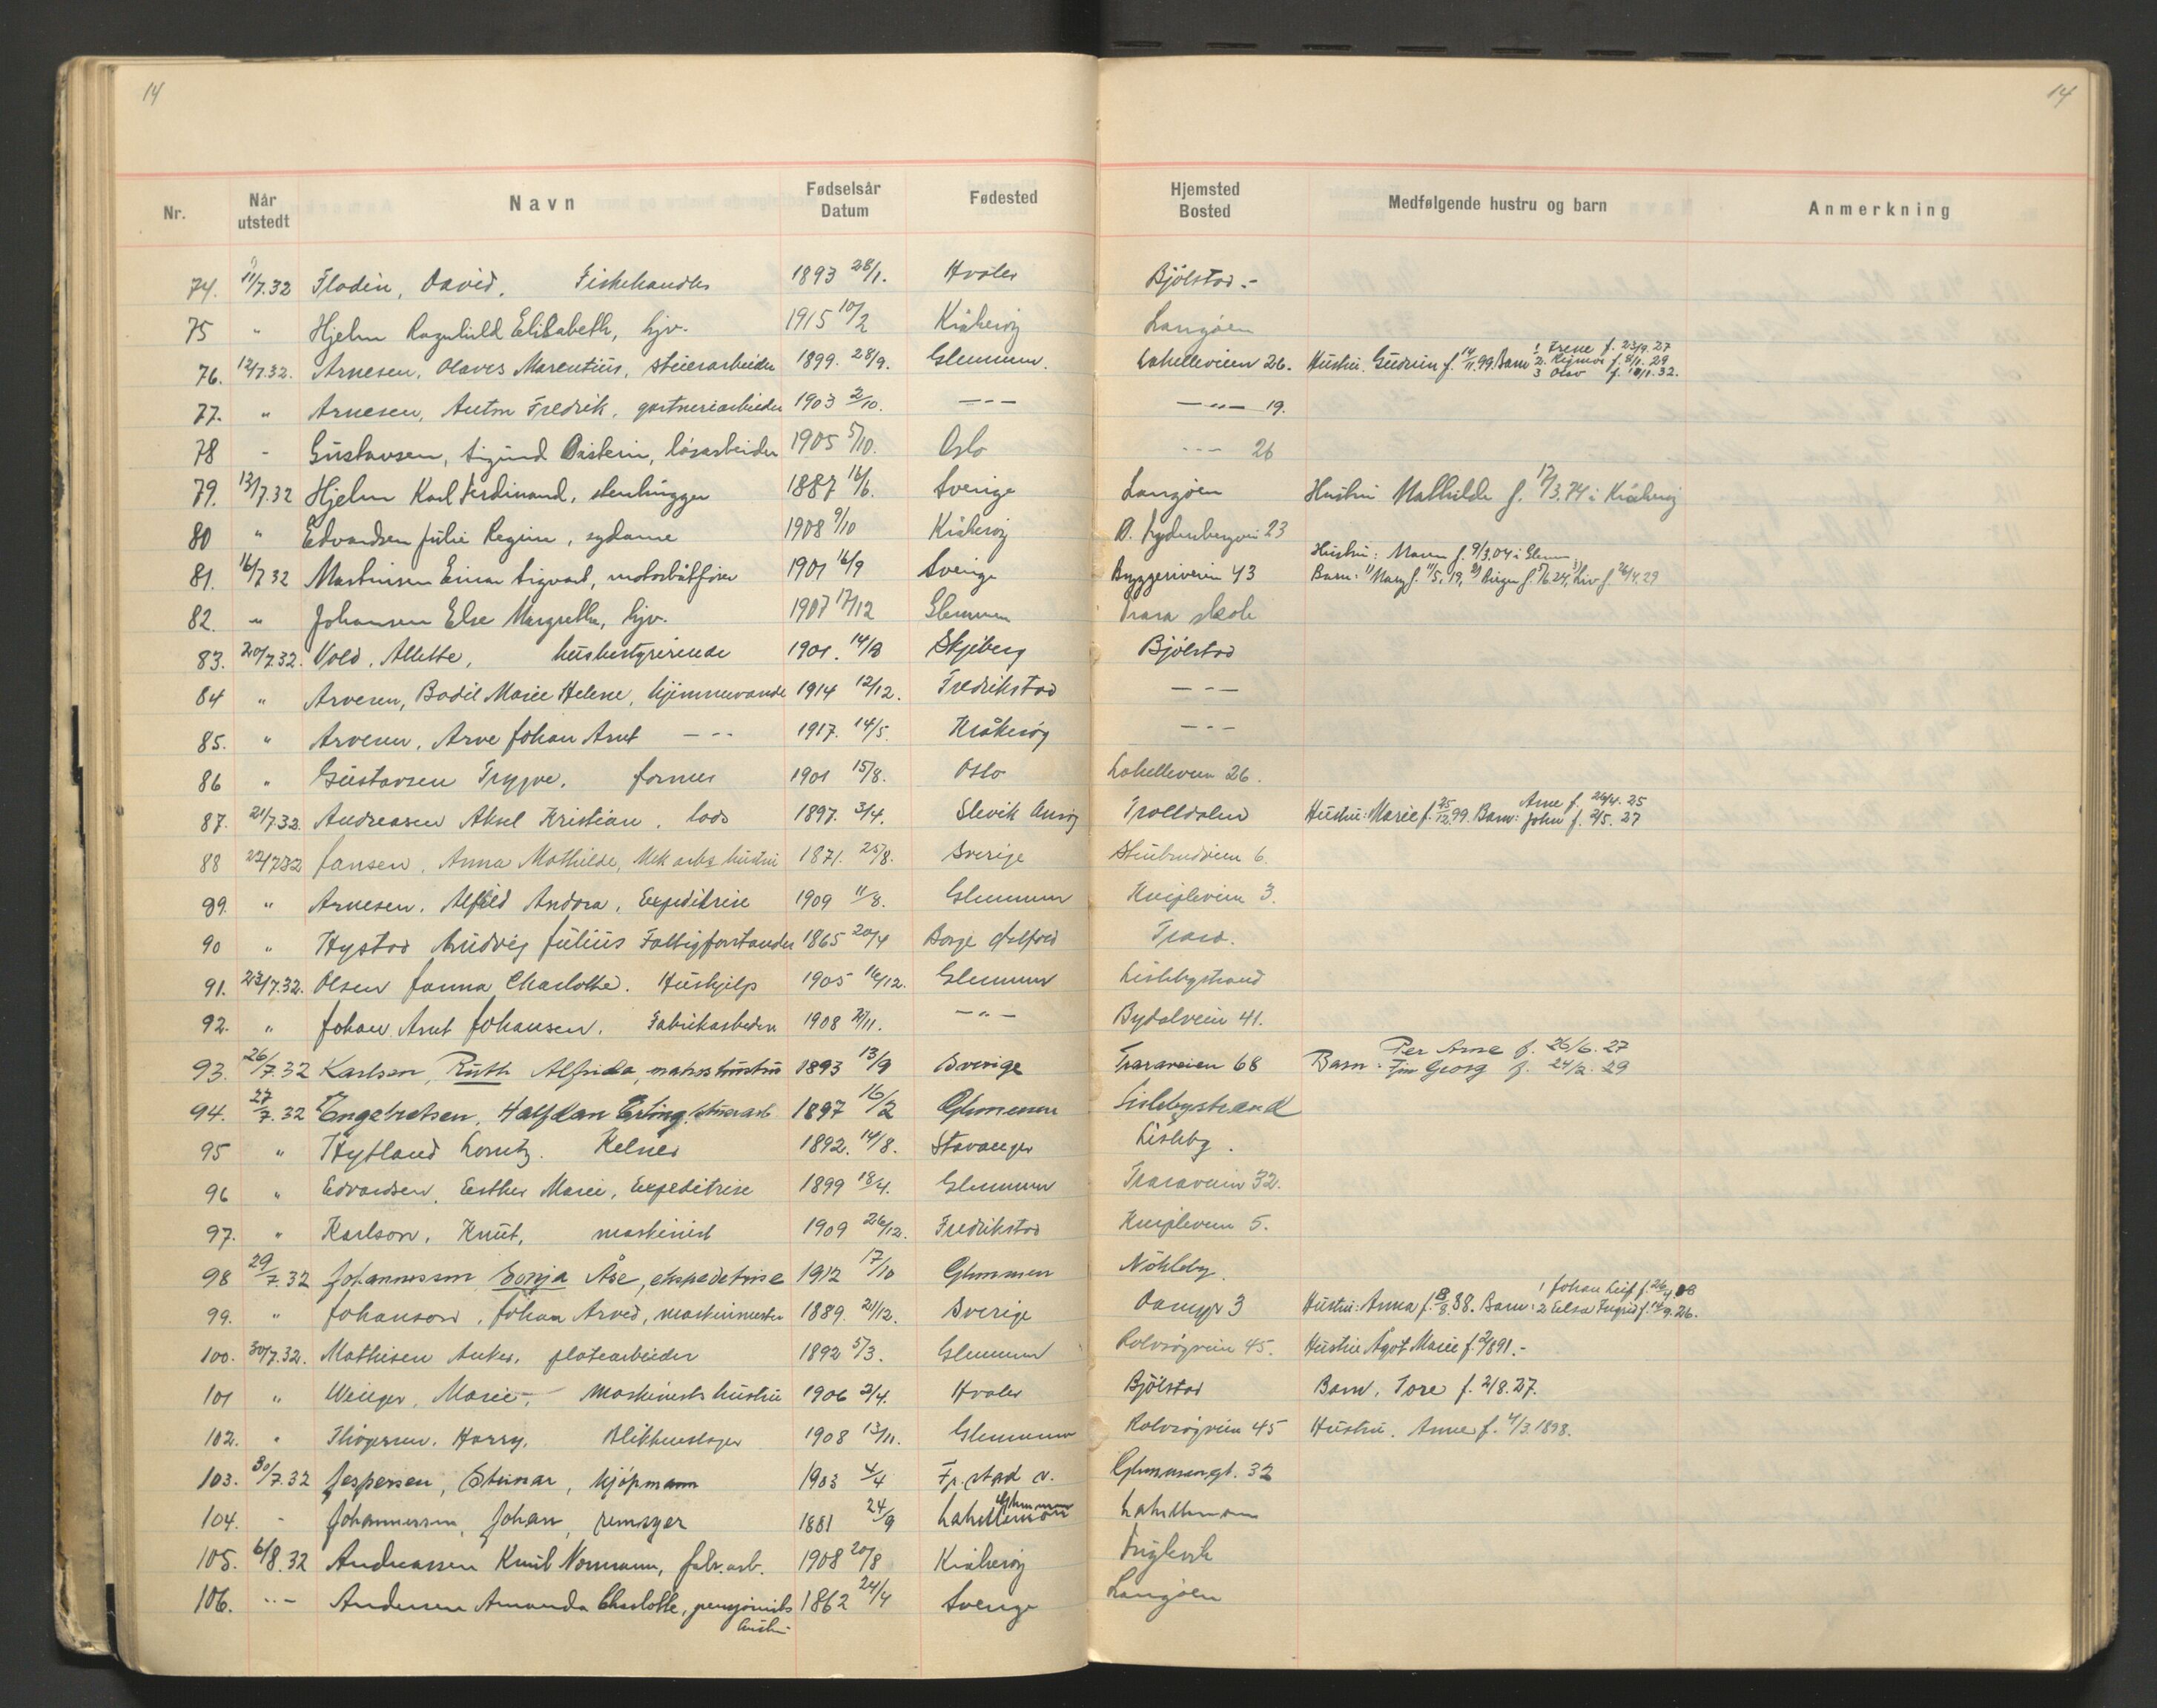 14 14
Nr. Når utstedt Navn Fødselsår Datum Fødested Hjemsted Bosted Medfølgende hustru og barn Anmerkning
74. 11/7.32 Flodin, David, Fiskehandler 1893 28/1. Hvaler Bjölstad.-
75 " Hjelm Ragnhild Elisabeth, hjv. 1915 10/2 Kråkerøy Langøen
76. 12/7.32. Arnesen, Olaves Marentius, steierarbeider 1899. 28/9. Glemmen. Lahelleveien 26. Hustru. Gudrun f. 14/11.99. Barn 1. Irene f. 23/9.27 2. Rigmor f. 8/1. 29 3 Olav f. 18/1.32.
77. " Arnesen, Anton Fredrik, gartneriarbeider 1903 2/10. — " — — " — 19.
78 - Gustavsen, Sigurd Øistein, løsarbeider 1905 5/10. Oslo - - - 26
79. 13/7.32 Hjelm Karl Ferdinand, stenhugger 1887 16/6. Sverige Langøen Hustru Mathilde f. 17/3.74 i Kråkerøy
80 " Edvardsen Julie Regine, sydame 1908 9/10 Kråkerøy O. Rydenbergvei 23
81. 16/7 32 Martinsen Einar Sigvart, motorbåtfører 1901 16/9 Sverige Bryggeriveien 43 Hustru: Maren f. 9/3.04 i Glemm. Barn: 1) Mary f. 11/5.19, 2) Birger f. 5/6.24, 3) Liv f. 26/4.29
82. " Johansen Else Margrethe, hjv. 1907 17/12 Glemmen Trara skole
83. 20/7.32. Vold, Allette, husbestyrerinde 1901. 14/3 Skjeberg Bjölstad
84 " Arvesen, Bodil Marie Helene, hjemmevænde 1914 12/12. Fredrikstad — - —
85. " Arvesen, Arve Johan Arnt — - - 1917. 14/5. Kråkerøy — - —
86 " Gustavsen Trygve, former 1901 15/8. Oslo Lahelleveien 26.
87. 21/7.32. Andreasen Aksel Kristian, lods 1897. 3/4. Slevik Onsøy Trolldalen Hustru: Marie f. 25/12.99. Barn: Arne f. 26/4. 25 John f. 2/5. 27
88 22/7.32 Jansen, Anna Mathilde, Mek arbs hustru 1871. 25/8. Sverige 6.
89. " Arnesen, Alfild Andora, Expeditrise 1909 11/8. Glemmen Knipleveien 3.
90 " Hystad Ludvig Julius Fattigforstander 1865 20/4 Borge Østfold Trara.
91. 23/7.32. Olsen Janna Charlotte. Hushjelp 1905 16/12. Glemmen Lislebystrand
92. " Johan Arnt Johansen, Fabrikarbeder 1908 21/11. — " — Bydalveien 41.
93. 26/7.32 Karlsen, Ruth Alfrida, matroshustru 1893 13/9 Sverige Traraveien 68 Barn: Per Arne f. 26/6. 27 Finn Georg f. 24/2. 29
94. 27/7.32 Engebretsen, Halfdan Erling, stuerarb 1897 16/2 Glemmen Lislebystrand
95 " Hytland Lorntz. Kelner 1892. 14/8. Stavanger Lisleby.
96 " Edvardsen, Esther Marie, Expeditrise 1899 18/4. Glemmen Traraveien 32.
97. " Karlson, Knut, maskinist 1909 26/12. Fredrikstad Kniplevein 5.
98 29/7.32 Johannessen Sonja Åse, ekspeditrise 1912 17/10 Glemmen Nökleby.
99. " Johanson, Johan Arved, maskinmester 1889. 21/12. Sverige Damyr 3 Hustru: Anna f. 13/8.88. Barn: 1 Johan Leif f. 26/4 18 2 Elsa Ingrid f. 14/9.26.
100. 30/7.32. Mathisen Anker, platearbeider 1892 5/3. Glemmen Rolvsøyveien 45. Hustru Ågot Marie f. 2/1891.-
101 " Wenger, Marie, Maskinists hustru 1906 2/4. Hvaler Bjölstad Barn, Tore f. 2/8.27.
102. " Thøgersen, Harry, Blikkenslager 1908 13/11. Glemmen Rolvsøyveien 45 Hustru. Anne f. 4/3.1898.
103. 30/7.32 Jespersen, Steinar, kjøpmann 1903 4/4 Fr.stad v. Glemmengt. 32
104. - Johannessen, Johan, 1881 24/9 Lahellemoen Glemmen Lahellemoen
105. 6/8.32 Andreassen Knut Normann, fabr.arb. 1908 20/8 Kråkerøy
106. - - Andersen Amanda Charlotte, pensjonists hustru 1862 24/4 Sverige Langøen